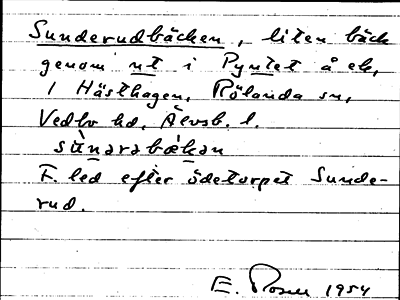 Sunderudbäcken, liten bäck
genom nt i Pyntet å ek,
i Hästhagen, Rölanda sn,
Vedbo hd, Älvsb. l.
F. led efter ödetorpet Sunde-
rud.
E. 1954